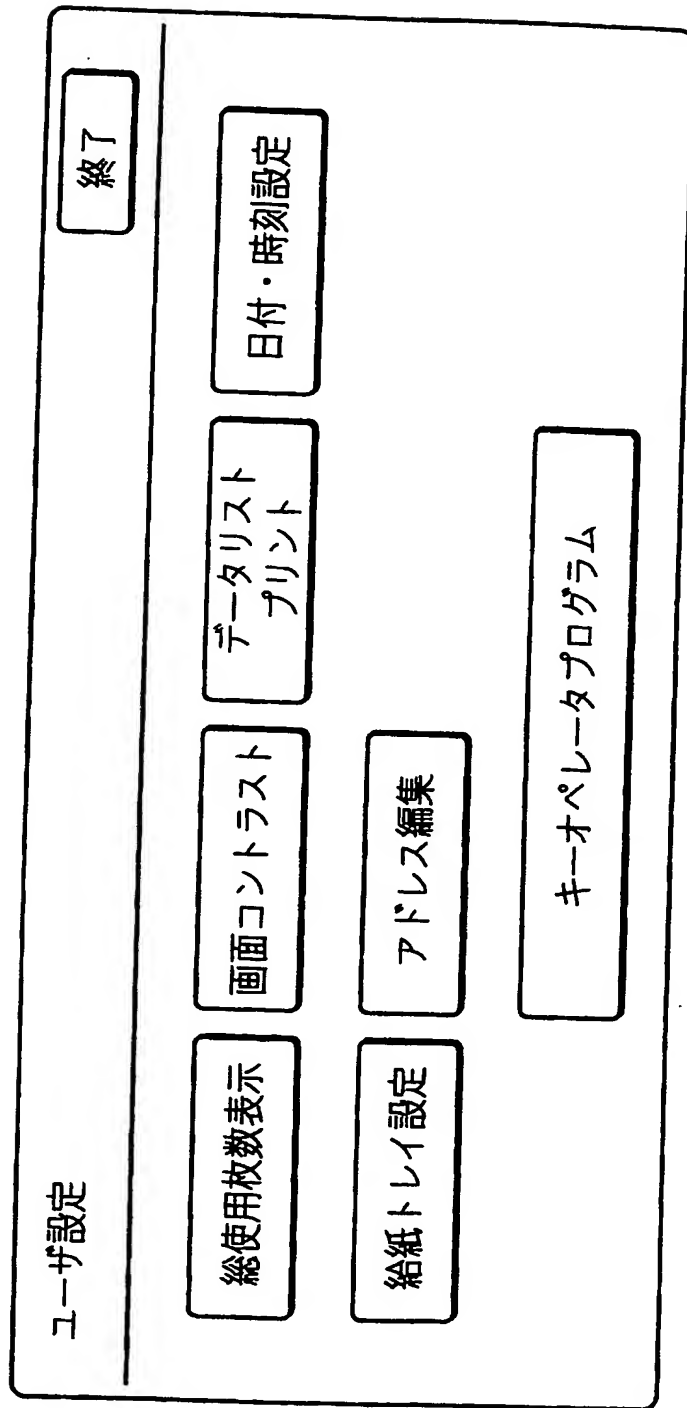 ユーザ設定
終了
総使用枚数表示
画面コントラスト
データリスト
プリント
日付・時刻設定
給紙トレイ設定
アドレス編集
キーオペレータプログラム